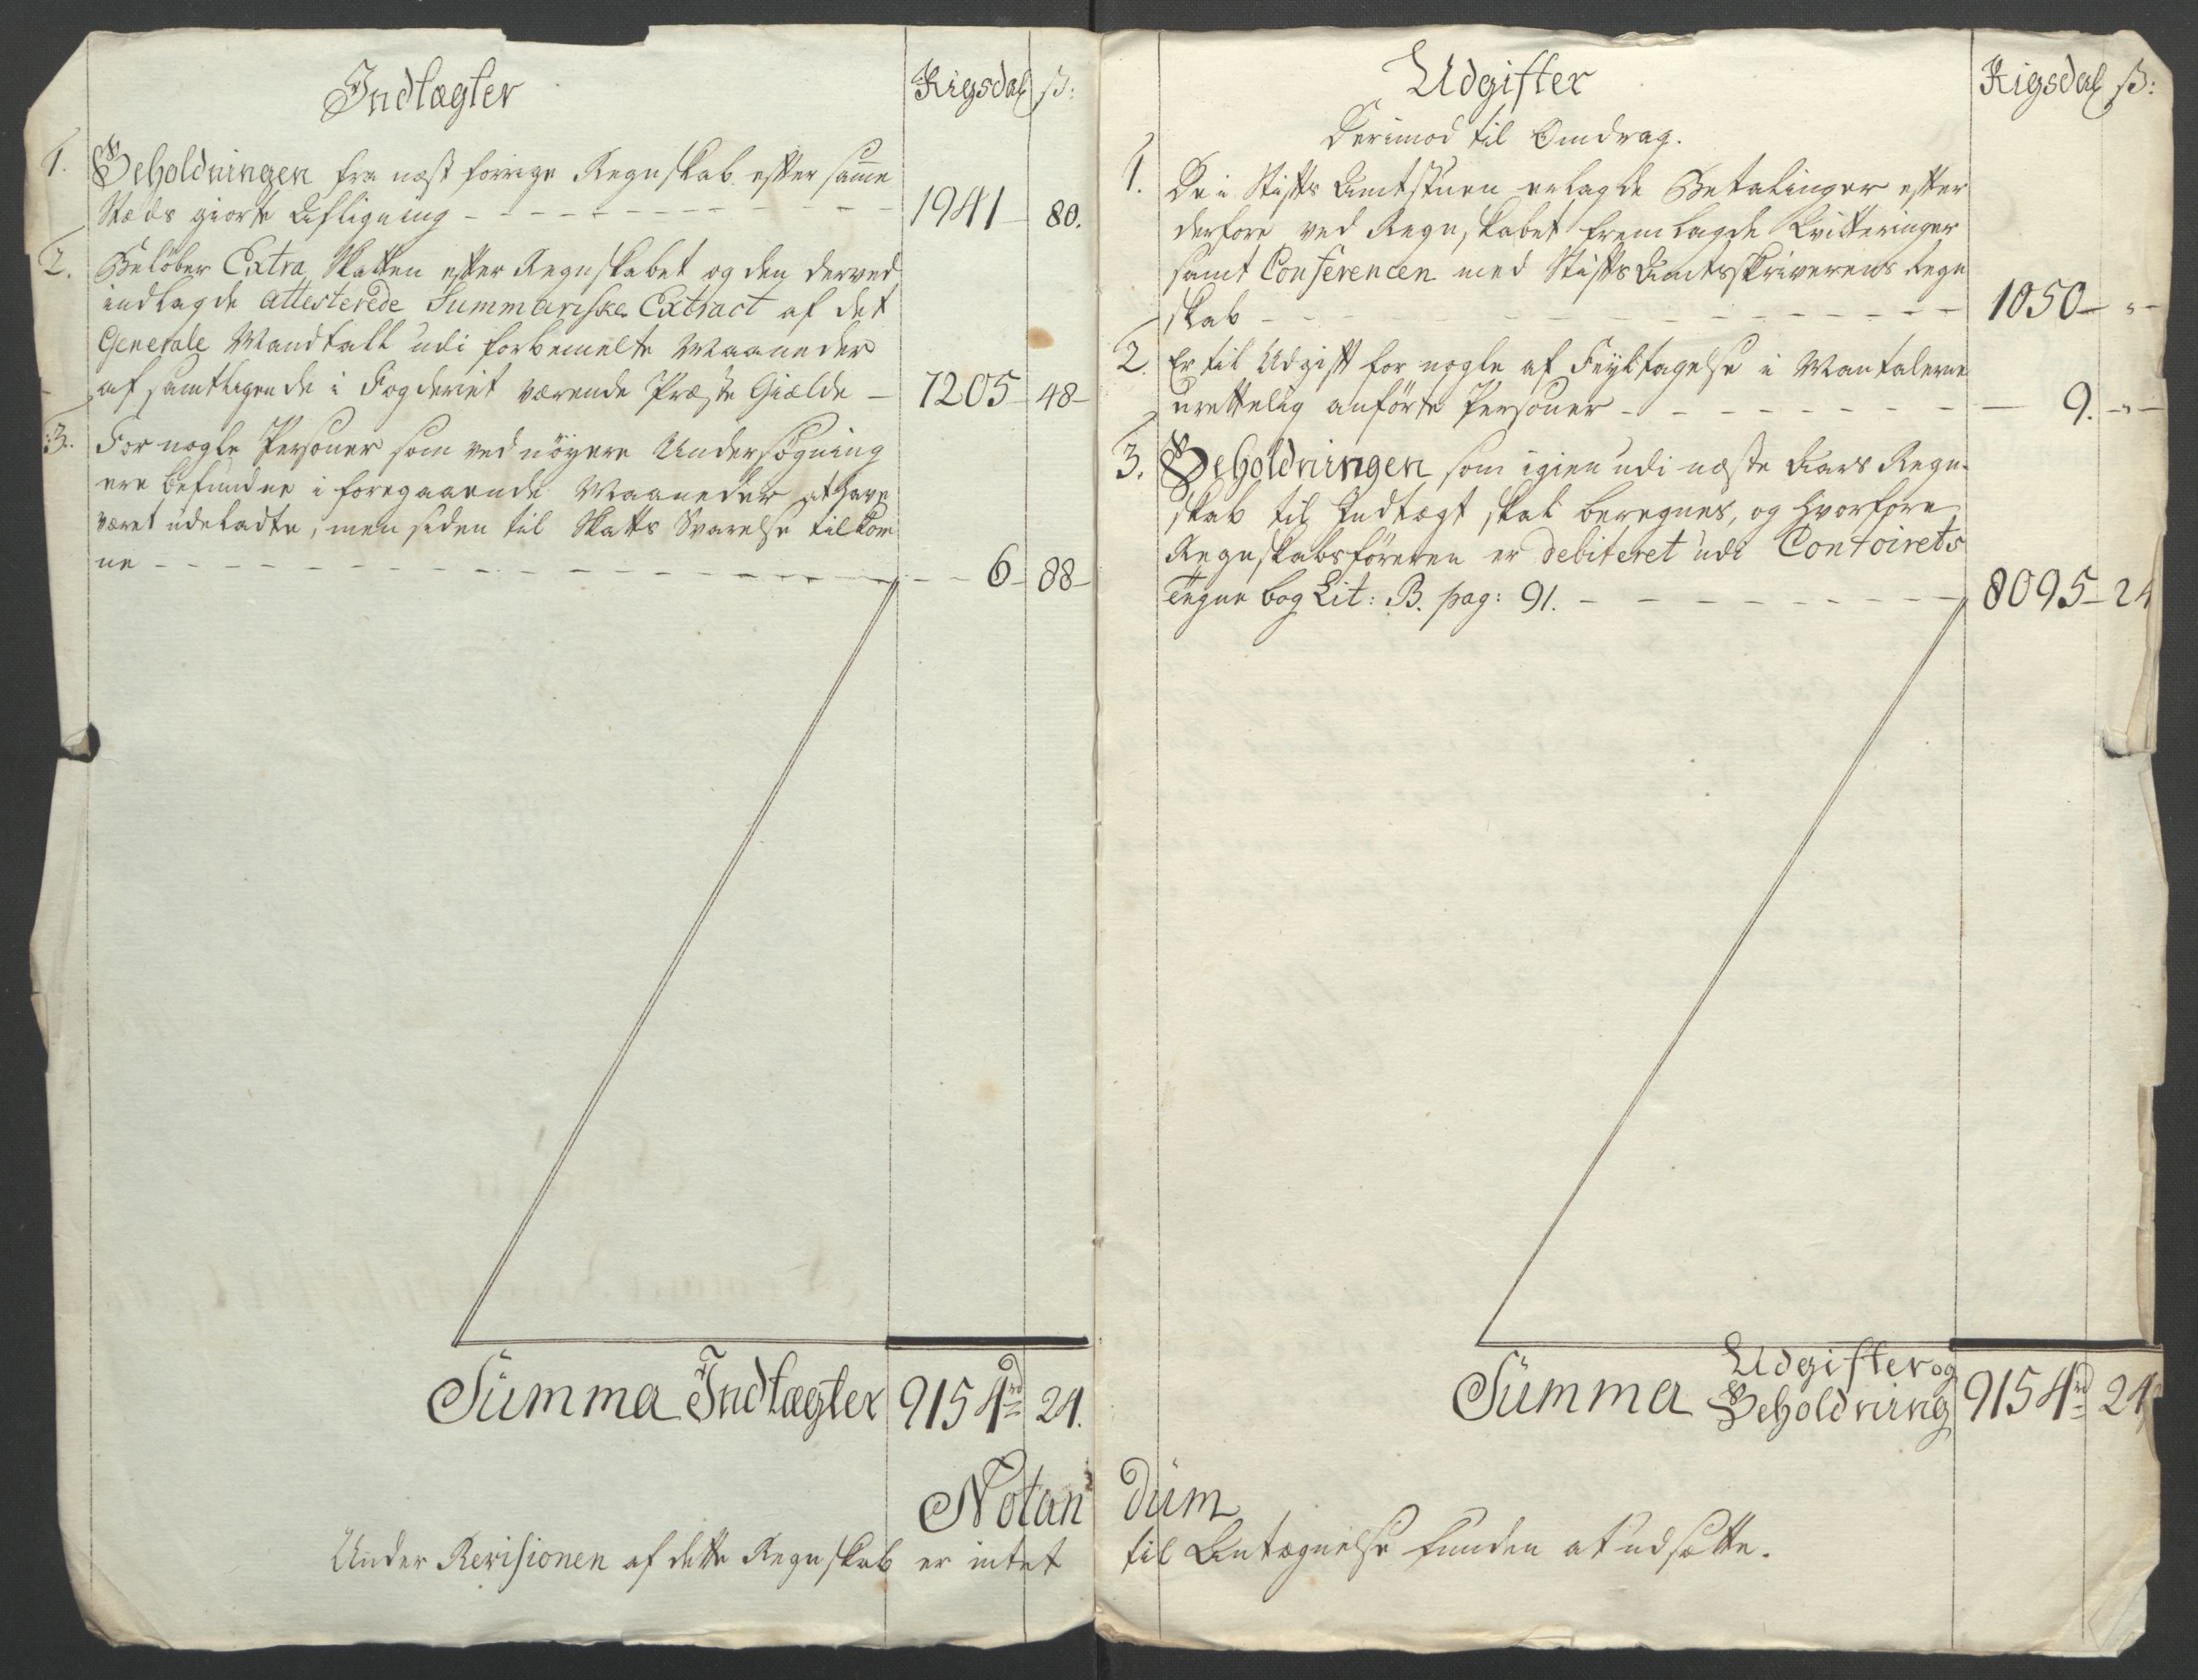 Indtægter
Rigsdal ß:
1. Beholdningen fra næst forrige Regnskab efter samme
Stæds giorte Afligning - 1941 - 80.
2. Beløber Extra Skatten efter Regnskabet og den derved
indlagde attesterede Summariske Extract af det
Generale Mandtall udi forbemelte Maaneder
af samtlige de i Fogderiet værende Præste Gields - 7205 - 48 -
3. For nogle Personer som ved nöyere Undersögning
ere befundne i foregaaende Maaneder at have
været udeladte, men siden til Skatts Svarelse tilkom
ne - 6 - 88 -
Summa Indtægter 9154 rd 24.
Udgifter
Rigsdal ß:
Derimod til Omdrag.
1. De i Stifts Amtstuen erlagde Betalinger efter
derfore ved Regnskabet fremlagde Qvitteringer
samt Conferencen med Stifts Amtsskriverens Regn
skab - 1050 - " -
2. Er til Udgift for nogle af Feyltagelse i Mantalerne
urettelig anförte Personer - 9. - " -
3. Beholdningen som igien udi næste Aars Regn-
skab til Indtægt skal beregnes, og hvorfore
Regnskabsföreren er debiteret udi Contoirets
Tegne bog Lit: B. pag: 91. - 8095 - 24
Summa Udgifter og
Beholdning 9154 rd 24
Notan düm
Under Revisionen af dette Regnskab er intet til Antegnelse funden at udsætte.